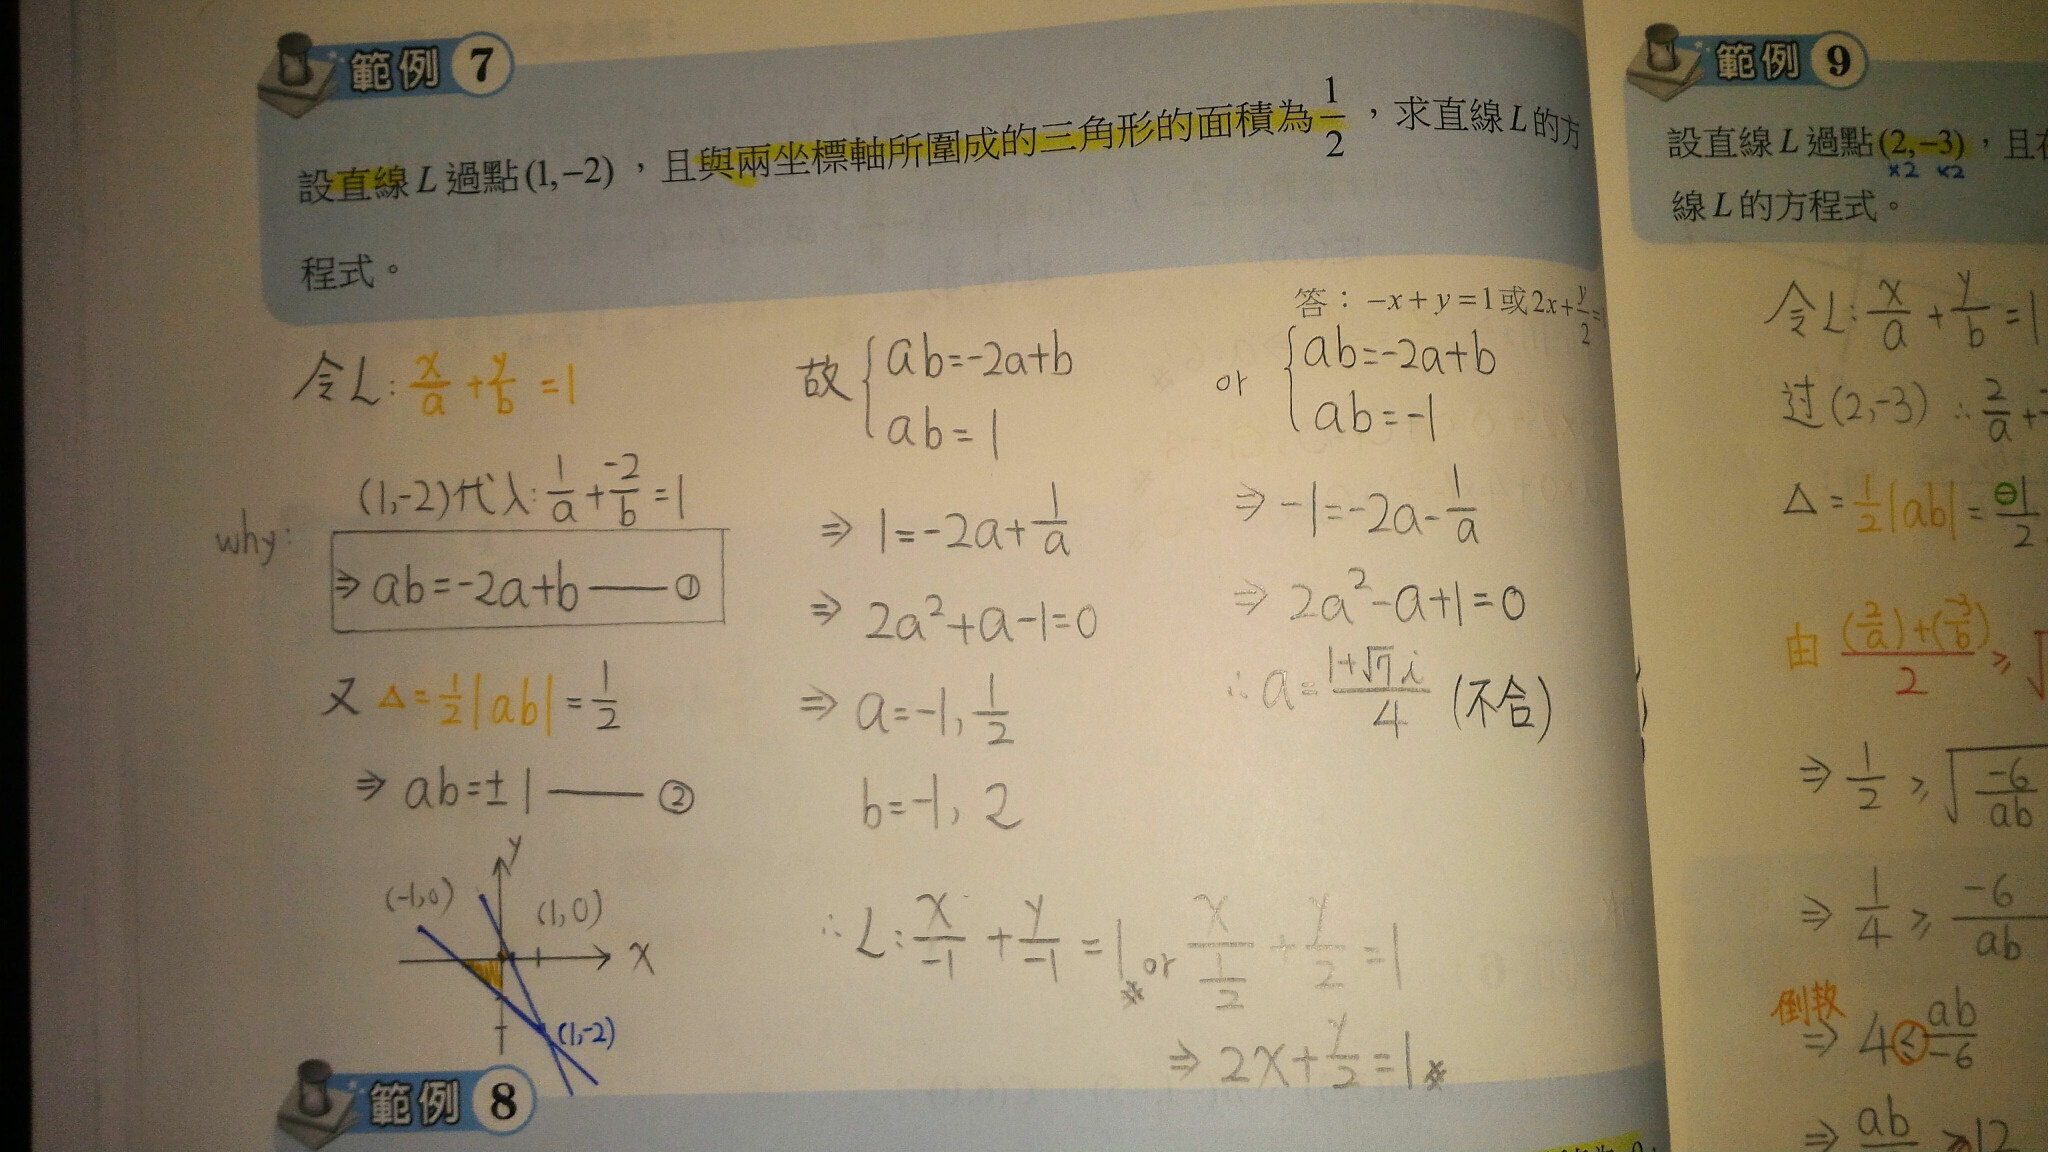 範例 7
設直線L過點(1,−2)，且與兩坐標軸所圍成的三角形的面積為1/2，求直線L的方
程式。
答：−x+y=1或2x+y/2=1
令L: x/a + y/b = 1
(1,-2)代入: 1/a + -2/b = 1
why:
⇒ ab=-2a+b —— ①
又 △=1/2|ab|=1/2
⇒ ab=±1 —— ②
y
(-1,0)
(1,0)
x
(1,-2)
故 { ab=-2a+b
ab=1
⇒ 1=-2a+1/a
⇒ 2a²+a-1=0
⇒ a=-1, 1/2
b=-1, 2
or { ab=-2a+b
ab=-1
⇒ -1=-2a-1/a
⇒ 2a²-a+1=0
∴a=(1+√7i)/4 (不合)
∴L: x/-1 + y/-1 = 1 or x/(1/2) + y/2 = 1
⇒ 2x+y/2=1
範例 8
範例 9
設直線L過點(2,−3)，且
×2 ×2
線L的方程式。
令L: x/a + y/b = 1
过(2,-3) ∴ 2/a +
△=1/2|ab|=⊖1/2
由 ((2/a)+(-3/b))/2 ≥ √
⇒ 1/2 ≥ √(-6/ab)
⇒ 1/4 ≥ -6/ab
倒数
⇒ 4 ≤ ab/-6
⇒ ab/ ≥12